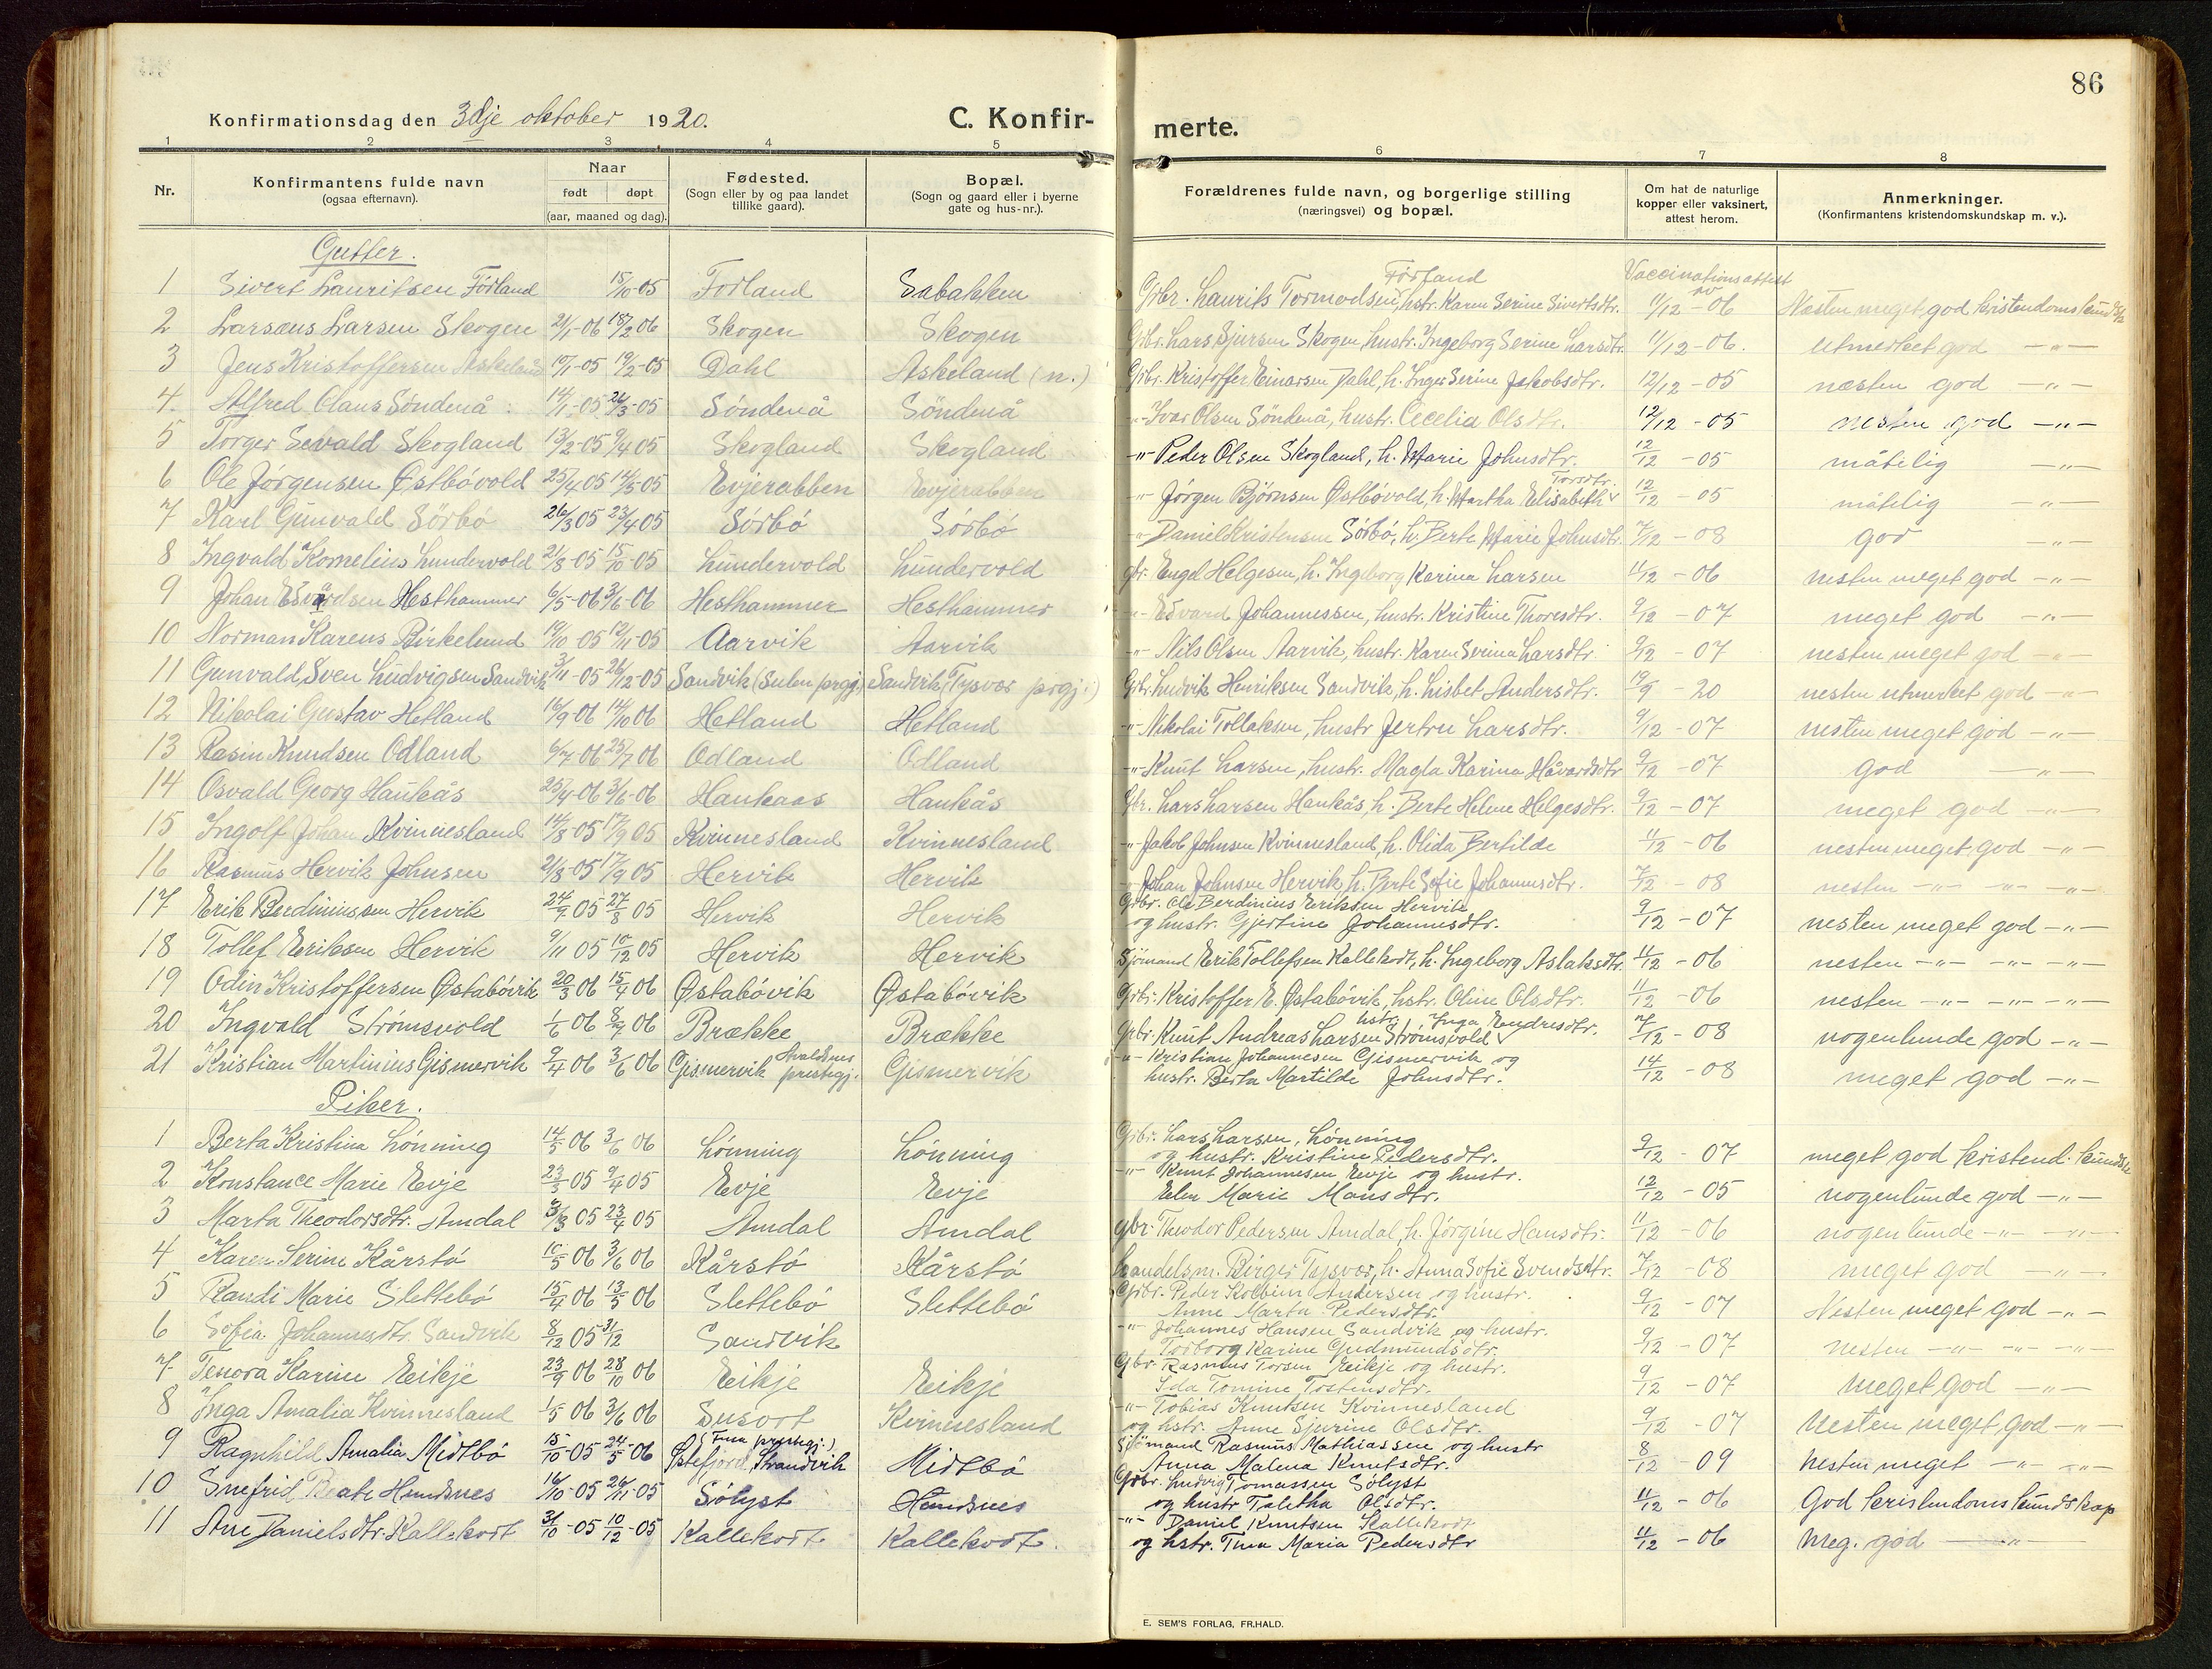 86
Konfirmationsdag den 3dje oktober 1920.
C. Konfirmerte.
1 2 3 4 5 6 7 8
Nr.
Konfirmantens fulde navn
(ogsaa efternavn).
Naar
født døpt
(aar, maaned og dag).
Fødested.
(Sogn eller by og paa landet
tillike gaard).
Bopæl.
(Sogn og gaard eller i byerne
gate og hus-nr.).
Forældrenes fulde navn, og borgerlige stilling
(næringsvei) og bopæl.
Om hat de naturlige
kopper eller vaksinert,
attest herom.
Anmerkninger.
(Konfirmantens kristendomskundskap m. v.).
Gutter.
Vaccinationsattest av
1 Sivert Lauritsen Førland 15/10-05 Førland Sabakken Gbr. Laurits Tormodsen Førland, hstr. Karen Serine Sivertsdtr. 11/12-06 Næsten meget god kristendomskundsk
2 Larsæus Larsen Skogen 21/1-06 18/2 06 Skogen Skogen Gbr. Lars Sjursen Skogen, hustr. Ingeborg Serine Larsdtr. 11/12-06. Utmerket god -"-
3 Jens Kristoffersen Askeland 10/1-05 19/2-05 Dahl Askeland (n.) Gbr. Kristoffer Einarsen Dahl, h. Inger Serine Jakobsdtr. 12/12-05 næsten god -"-
4. Alfred Claus Søndenå 14/1-05 26/3-05 Søndenå Søndenå -"- Ivar Olsen Søndenå, hustr. Cecelia Olsdtr. 12/12-05 nesten god -"-
5 Torger Sevald Skogland 13/2-05 9/4 05 Skogland Skogland -"- Peder Olsen Skogland, h. Marie Johnsdtr. 12/12-05 måtelig -"-
6 Ole Jørgensen Østbøvold 25/4 05 14/5-05 Evjerabben Evjerabben -"- Jørgen Bjørnsen Østbøvold, h. Martha Elisabeth Torsdtr. 12/12-05 måtelig "
7 Karl Gunvald Sørbø 26/3 05 23/4 05 Sørbø Sørbø -"- Daniel Kristensen Sørbø, h. Berte Marie Johnsdtr. 7/12-08 god -"-
8 Ingvald Kornelius Lundervold 21/8-05 15/10-05 Lundervold Lundervold gbr. Engel Helgesen, h. Ingeborg Karina Larsen 11/12-06 nesten meget god -"-
9 Johan Edvardsen Hesthammer 6/5-06 3/6-06 Hesthammer Hesthammer -"- Edvard Johannessen, hustr. Kristine Thoresdtr. 9/12-07 meget god -"-
10 Norman Karens Birkelund 19/10-05 12/11-05 Aarvik Aarvik -"- Nils Olsen Aarvik, hustr. Karen Serina Larsdtr. 9/12-07 nesten meget god -"-
11 Gunvald Sven Ludvigsen Sandvik 3/11-05 26/12-05 Sandvik (Sulen prgj.) Sandvik (Tysvær prgj.) Gbr. Ludvik Henriksen Sandvik, h. Lisbet Andersdtr. 19/9-20 nesten utmerket god -"-
12 Nikolai Gustav Hetland 16/9 06 14/10 06 Hetland Hetland -"- Nikolai Tollaksen, hustr Jertru Larsdtr. 9/12-07 nesten meget god -"-
13 Rasin Knudsen Odland 6/7-06 25/7 06 Odland Odland -"- Knut Larsen, hustr. Magla Karina Håvardsdtr 9/12-07 god -"-
14 Osvald Georg Haukås 23/4-06 3/6-06 Haukaas Haukås Gbr. Lars Larsen Haukås, h. Berte Helene Helgesdtr. 9/12-07 meget god -"-
15 Ingolf Johan Kvinnesland 14/8 05 17/9 05 Kvinnesland Kvinnesland -"- Jakob Johnsen Kvinnesland, h. Olida Bertilde 11/12-06 nesten meget god -"-
16 Rasmus Hervik Johnsen 2/8-05 17/9 05 Hervik Hervik -"- Johan Johnsen Hervik, h. Berte Sofie Johannesdtr. 7/12-08 nesten -"- -"- -"-
17 Erik Berdiniussen Hervik 24/7 05 27/8 05 Hervik Hervik Gbr. Ole Berdinius Eriksen Hervik
og hustr. Gjertine Johannesdtr. 9/12-07 nesten meget god -"-
18 Tollef Eriksen Hervik 9/11 05 10/12 05 Hervik Hervik Sjømand Erik Tollefsen Kallekodt, h. Ingeborg Aslaksdtr. 11/12-06 nesten -"- -"- -"-
19 Odin Kristoffersen Østabøvik 20/3 06 15/4 06 Østabøvik Østabøvik Gbr. Kristoffer E. Østabøvik, hstr. Oline Olsdtr. 11/12-06 nesten -"- -"- -"-
20 Ingvald Strømsvold 1/6 06 8/7 06 Brække Brække Gbr. Knut Andreas Larsen Strømsvold hstr. Inga Endresdtr. 7/12-08 nogenlunde god -"-
21 Kristian Martinius Gismervik 9/4 06 3/6 06 Gismervik Avaldsnes prestegj. Gismervik -"- Kristian Johannesen Gismervik og
hustr. Berta Martilde Johnsdtr. 14/12-08 meget god -"-
Piker.
1 Berta Kristina Lønning 14/5 06 3/6 06 Lønning Lønning Gbr. Lars Larsen, Lønning
og hustr. Kristine Pedersdtr. 9/12-07 meget god kristend. kundsk
2 Konstance Marie Evje 23/3 05 9/4 05 Evje Evje -"- Knut Johannesen Evje og hustr.
Elen Marie Monsdtr. 12/12-05 nogenlunde god -"-
3 Marta Theodorsdtr. Amdal 3/3 05 23/4 05 Amdal Amdal gbr. Theodor Pedersen Amdal, h. Jørgine Hansdtr. 11/12-06 nogenlunde -"- -"-
4 Karen Serine Kårstø 10/5 06 3/6 06 Kårstø Kårstø handelsm. Birger Tysvær, h. Anna Sofie Svendsdtr. 7/12-08 meget god -"-
5 Randi Marie Slettebø 15/4 06 13/5 06 Slettebø Slettebø Gbr. Peder Kolbein Andersen og hustr.
Anne Marta Pedersdtr. 9/12-07 Nesten meget god -"-
6 Sofia Johannesdtr. Sandvik 8/12 05 31/12 Sandvik -"- Johannes Hansen Sandvik og hustr.
Torborg Karine Gudmundsdtr. 9/12-07 nesten -"- -"- -"-
7 Tenora Karine Eikje 23/9 06 28/10 06 Eikje Eikje Gbr. Rasmus Torsen Eikje og hustr.
Ida Tomine Tostensdtr. 9/12-07 meget god -"-
8 Inga Amalia Kvinnesland 1/5 06 3/6 06 Susort Kvinnesland -"- Tobias Knutsen Kvinnesland
og hstr. Anne Sjurine Olsdtr. 9/12-07 Nesten meget god -"-
9 Ragnhild Amalia Midtbø 15/10-05 24/5-06 Østefjord, Strandvik (Fusa prestegj.) Midtbø Sjømand Rasmus Mathiassen og hustr
Anna Malena Knutsdtr. 8/12-09 nesten meget -"- -"-
10 Snefrid Beate Hundsnes 16/10-05 26/11-05 Sólyst Hundsnes Gbr. Ludvig Tomassen Sólyst
og hustr Taletha Olsdtr. 11/12-06 God kristendomskundskap
11 Ane Danielsdtr. Kallekodt 31/10-05 10/12-05 Kallekodt Kallekodt. -"- Daniel Knutsen Kallekodt
og hstr. Thea Maria Pedersdtr 11/12-06 Meg. god -"-
E. SEM'S FORLAG, FR.HALD.